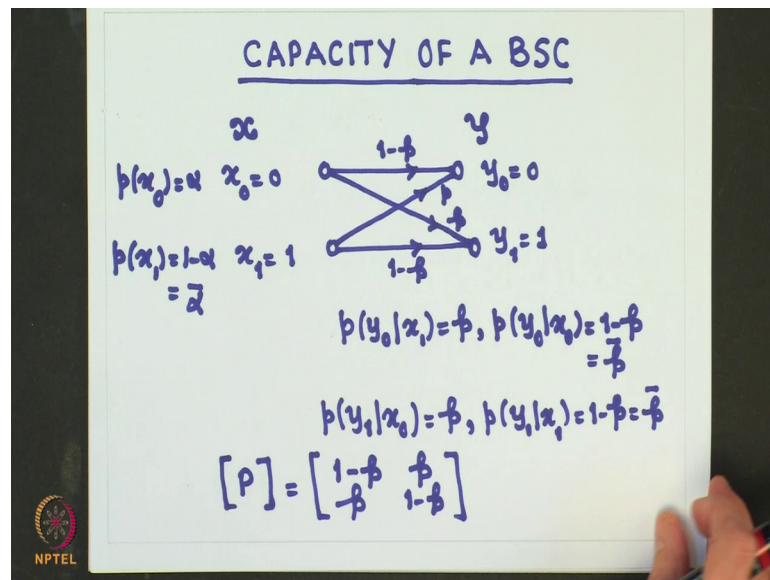 CAPACITY OF A BSC
x y
p(x₀)=α x₀=0 1-p y₀=0
p
p
p(x₁)=1-α x₁=1 1-p y₁=1
=ᾱ
p(y₀|x₁)=p, p(y₀|x₀)=1-p
=p̄
p(y₁|x₀)=p, p(y₁|x₁)=1-p=p̄
[P]=[1-p p
p 1-p]
NPTEL